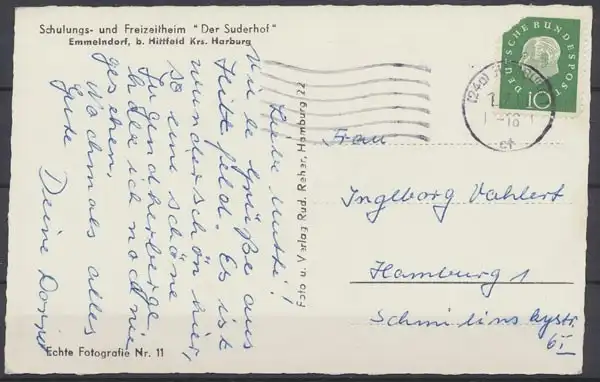 Schulungs- und Freizeitheim "Der Suderhof"
Emmelndorf, b. Hittfeld Krs. Harburg
Liebe Mutti!
Viele Grüße aus
Hittfeld. Es ist
wunderschön hier,
so eine schöne
Jugendherberge
habe ich noch nie
gesehen.
Nochmals alles
Gute
Deine
Echte Fotografie Nr. 11
Foto u. Verlag Rud. Reher, Hamburg 22
DEUTSCHE BUNDESPOST
10
(24a)
-18
Frau
Ingeborg Vahlert
Hamburg 1
Schmilinskystr.
61